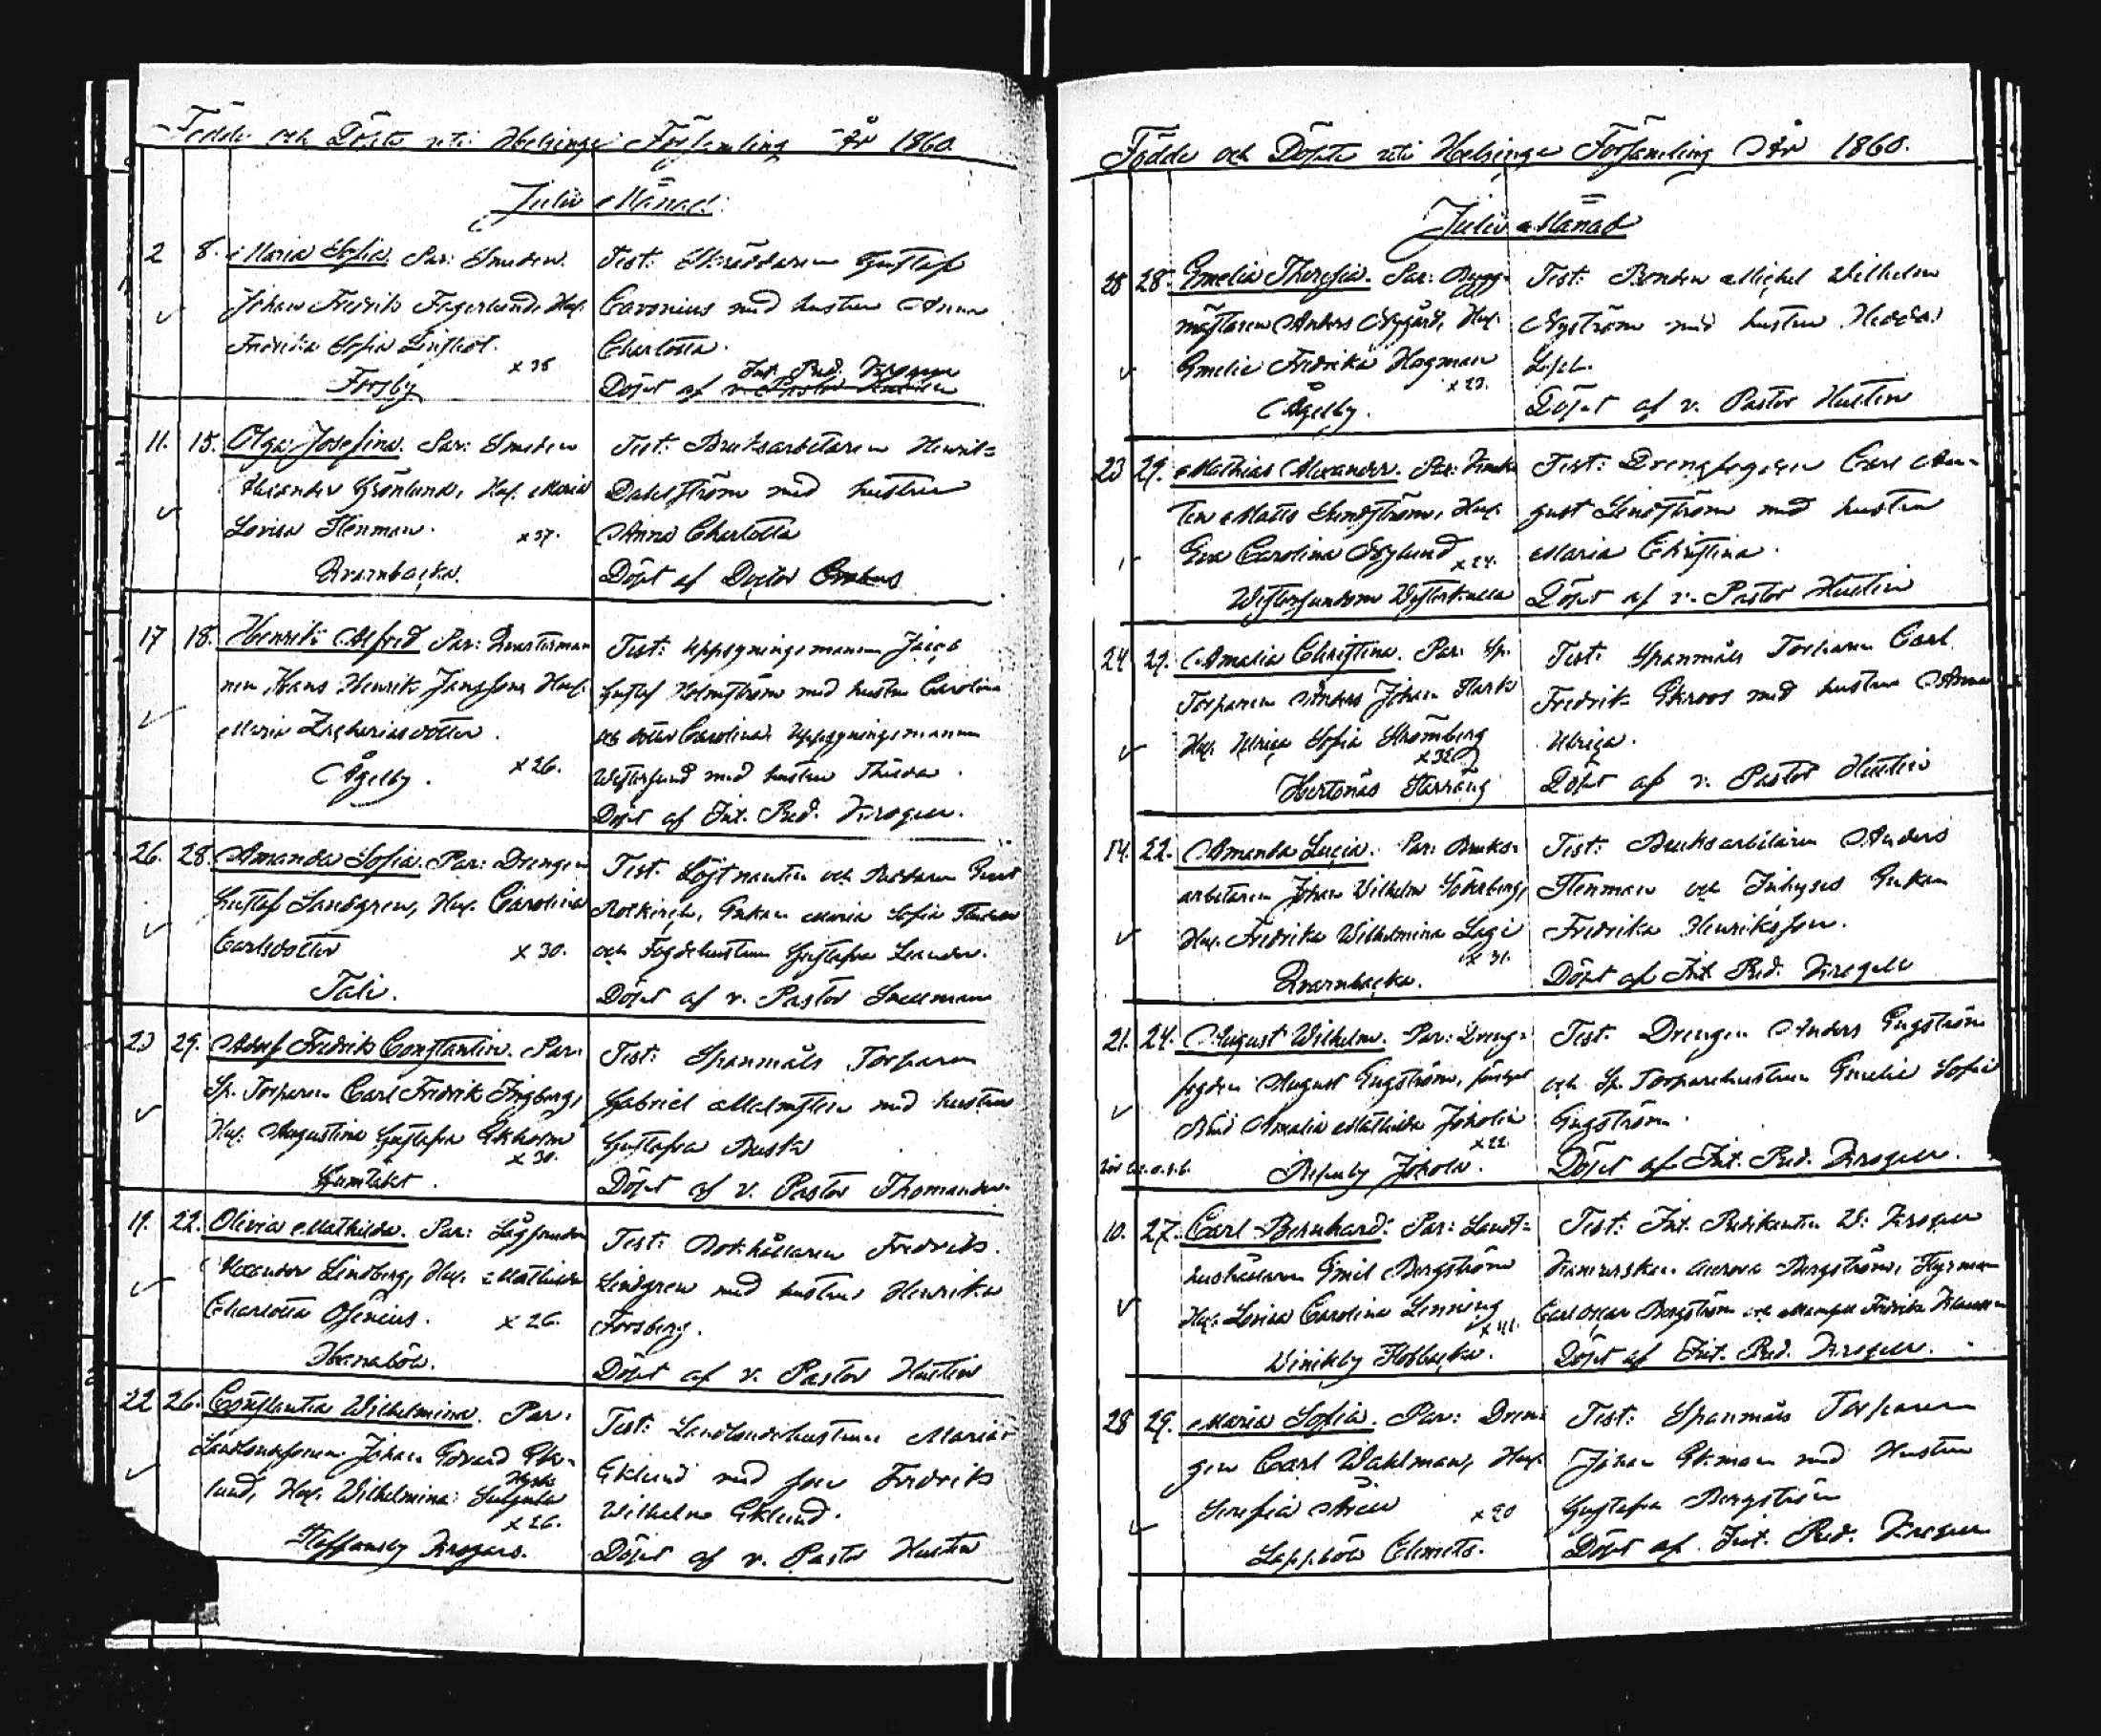 Födde och Döpte uti Helsinge Församling År 1860.
Julii Månad.
2 8. Maria Sofia. Par: Smeden
Johan Fredrik Fagerlund, Hus.
Fredrika Sofia
x 35
Forsby
Test: Skräddaren Gustaf
Caronius med hustru Anna
Charlotta.
Int. Pred. Krogell
Döpt af v. Pastor
11. 15. Olga Josefina. Par: Smeden
Alexander Grönlund, Hus. Maria
Lovisa Stenman.
x 37.
Qvarnbacka.
Test: Bruksarbetaren Henrik
Dahlström med hustru
Anna Charlotta
Döpt af Doctor
17 18. Henrik Alfred Par: Qvasterman
nen Hans Henrik Jansson, Hus.
Maria Zachariasdotter.
x 26.
Ågelby.
Test: Uppsyningsmannen Jacob
Gustaf Holmström med hustru Carolina
och dotter Carolina, Uppsyningsmannen
Westerlund med hustru
Döpt af Int. Pred. Krogell.
26. 28. Amanda Sofia. Par: Drengen
Gustaf Sandgren, Hus. Carolina
Carlsdotter x 30.
Tali.
Test: Löjtnanten och Riddaren
Rotkirch, Enkan Maria Sofia
och Fogdehustrun Gustafva
Döpt af v. Pastor Snellman
23 29. Adolf Fredrik Constantin. Par:
Sp. Torparen Carl Fredrik Frigberg,
Hus. Augustina Gustafva Ekholm
x 30.
Gumtäkt.
Test: Spanmåls Torparen
Gabriel Malmsten med hustru
Gustafva Busk
Döpt af v. Pastor Thomander.
19. 22. Olivia Mathilda. Par: Sågsmeden
Alexander Lindberg, Hus. Mathilda
Charlotta Ofenius. x 26.
Hanaböle.
Test: Bokhållaren Fredrik
Lindgren med hustru Henrika
Forsberg.
Döpt af v. Pastor Hustin
22 26. Constantia Wilhelmina. Par:
Landbondesonen Johan Edvard Ek-
lund, Hus. Wilhelmina
x 26.
Staffansby Krogars.
Test: Landbondehustrun Maria
Eklund med son Fredrik
Wilhelm Eklund.
Döpt af v. Pastor Hustin
Födde och Döpte uti Helsinge Församling År 1860.
Julii Månad
28 28. Emelia Theresia. Par: Bygg-
mästaren Anders Nygård, Hus.
Emelie Fredrika Hagman
x 23.
Ågelby.
Test: Bonden Michel Wilhelm
Nyström med hustru Hedda
Döpt af v. Pastor Hustin
23 29. Mathias Alexander. Par:
Matts Lindström, Hus.
Eva Carolina Nylund
x 24.
Westersundom Westerkulla
Test: Drengfogden Carl Au-
gust Lindström med hustru
Maria Christina.
Döpt af v. Pastor Hustin
24 29. Amalia Christina. Par: Sp.
Torparen Anders Johan Stark
Hus. Ulrica Sofia Strömberg
x 32
Hertonäs Starräng
Test: Spanmåls Torparen Carl
Fredrik Ekroos med hustru Anna
Ulrica.
Döpt af v. Pastor Hustin
14. 22. Amanda Lucia. Par: Bruks-
arbetaren Johan Wilhelm Söderberg,
Hus. Fredrika Wilhelmina
x 31.
Qvarnbacka.
Test: Bruksarbetaren Anders
Stenman och Inhyses Enkan
Fredrika Henriksson.
Döpt af Int. Pred. Krogell
21. 24. August Wilhelm. Par: Dreng-
fogden August Engström,
Amalia Mathilda Jokola
x 22.
Jokola.
Test: Drengen Anders Engström
och Sp. Torparehustrun Emelie Sofia
Engström.
Döpt af Int. Pred. Krogell.
10. 27. Carl Bernhard. Par: Landt-
hushållaren Emil Bergström
Hus. Lovisa Carolina Lenning
x 41.
Winikby Stobbacka.
Test: Int. Predikanten W. Krogell
Aurora Bergström, Styrman
Carl Oscar Bergström och Mamsell Fredrika
Döpt af Int. Pred. Krogell.
28 29. Maria Sofia. Par: Dren-
gen Carl Wahlman, Hus.
Serafia
x 20
Lappböle Clemets.
Test: Spanmåls Torparen
Johan Ekman med Hustru
Gustafva Bergström
Döpt af Int. Pred. Krogell